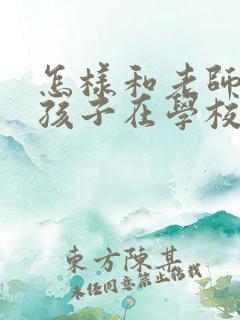 怎樣和老師
孩子在學校
東方陳某
未经同意禁止转载